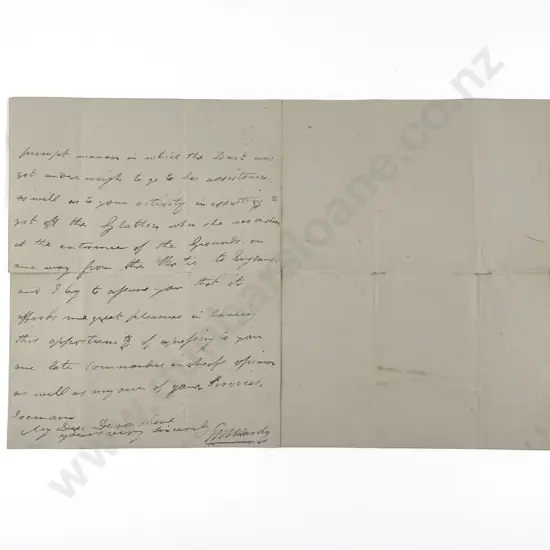 prompt manner in which the Dart was
got under weigh to go to her assistance,
as well as to your activity in assisting to
get off the Glatton when she was
at the entrance of the Grounds on
our way from the to England
and I beg to assure you that it
affords me great pleasure in having
this opportunity of expressing to you
our late Commander in chief's opinion
as well as my own of your Services.
I remain
My Dear
yours very sincerely
TM Hardy